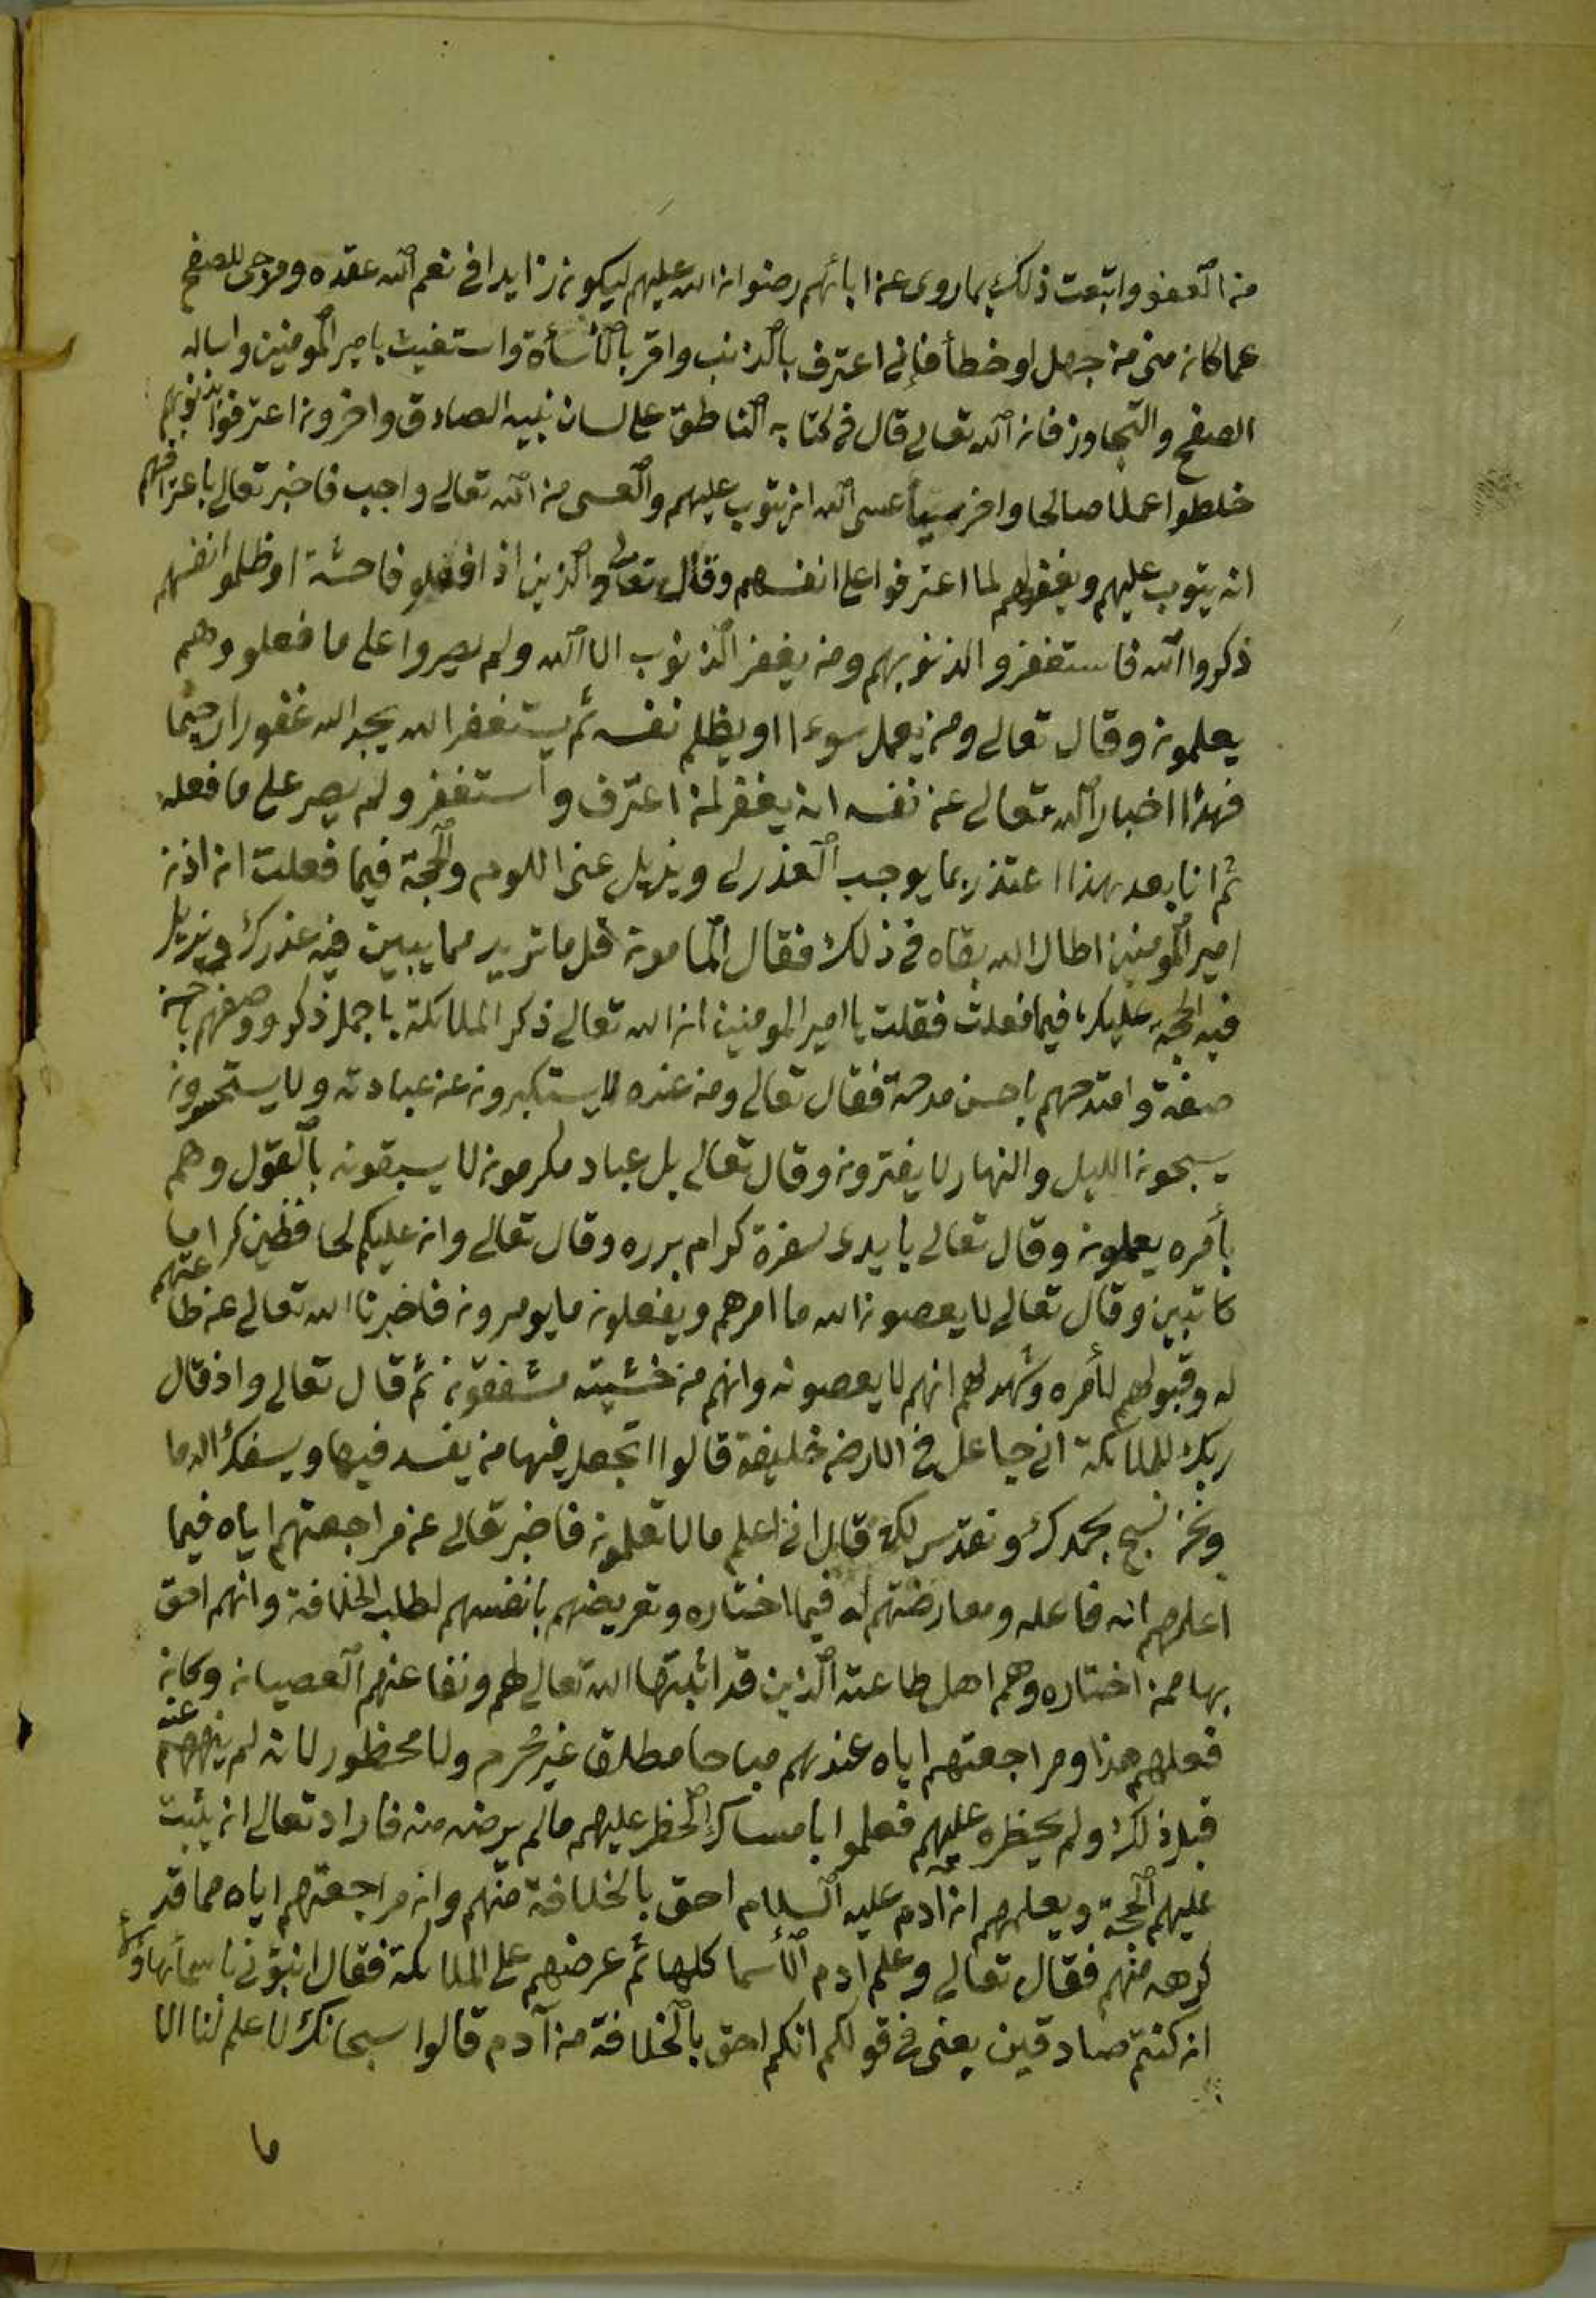 من العفو واتبعت ذلك بما روى عن ابائهم رضوان الله عليهم ليكون زايدا في نعم الله عنده وموجبا للصفح
عما كان منى من جهل او خطأ فإني اعترف بالذنب واقر بالأسأة واستغيث بامير المومنين واساله
الصفح والتجاوز فان الله تعالى قال في كتابه الناطق على لسان نبيه الصادق واخرون اعترفوا بذنوبهم
خلطوا عملا صالحا واخر سيأ عسى الله ان يتوب عليهم والعسى من الله تعالى واجب فاخبر تعالى باعترافهم
انه يتوب عليهم ويغفر لهم لما اعترفوا على انفسهم وقال تعالى والذين اذا فعلو فاحشة او ظلموا انفسهم
ذكروا الله فاستغفروا لذنوبهم ومن يغفر الذنوب الا الله ولم يصروا على ما فعلو وهم
يعلمون وقال تعالى ومن يعمل سوءا او يظلم نفسه ثم يستغفر الله يجد الله غفورا رحيما
فهذا اخبار الله تعالى عن نفسه انه يغفر لمن اعترف واستغفر ولم يصر على ما فعله
ثم انا بعد هذا اعتذر بما يوجب العذر لي ويزيل عنى اللوم والحجة فيما فعلت ان اذن
امير المومنين اطال الله بقاه في ذلك فقال المامون قل ما تريد مما يبين فيه عذرك ويزيل
فيه الحجة عليك فيما فعلت فقلت يا امير المومنين ان الله تعالى ذكر الملائكة باجمل ذكر ووصفهم باحسن
صفة وامتدحهم باحسن مدحة فقال تعالى ومن عنده لا يستكبرون عن عبادته ولا يستحسرون
يسبحون الليل والنهار لا يفترون وقال تعالى بل عباد مكرمون لا يسبقونه بالقول وهم
بأمره يعملون وقال تعالى بايدى سفرة كرام برره وقال تعالى وان عليكم لحافظين كراما
كاتبين وقال تعالى لا يعصون الله ما امرهم ويفعلون ما يومرون فاخبرنا الله تعالى عن طاعتهم
له وقبولهم لأمره وشهد لهم انهم لا يعصونه وانهم من خشيته مشفقون ثم قال تعالى واذ قال
ربك للملائكة اني جاعل في الارض خليفة قالوا اتجعل فيها من يفسد فيها ويسفك الدما
ونحن نسبح بحمدك ونقدس لك قال اني اعلم ما لا تعلمون فاخبر تعالى عن مراجعتهم اياه فيما
اعلمهم انه فاعله ومعارضتهم له فيما اختاره وتعريضهم بانفسهم لطلب الخلافة وانهم احق
بها ممن اختاره وهم اهل طاعته الذين قد اثبتها الله تعالى لهم ونفا عنهم العصيان وكان
فعلهم هذا ومراجعتهم اياه عندهم مباحا مطلق غير محرم ولا محظور لانه لم ينههم عنه
قبل ذلك ولم يحظره عليهم فعلموا بامساك الحظر عليهم ما لم يرضه منه فاراد تعالى ان يثبت
عليهم الحجة ويعلمهم ان آدم عليه السلام احق بالخلافة منهم وان مراجعتهم اياه مما قد
كرهه منهم فقال تعالى وعلم ادم الأسما كلها ثم عرضهم على الملائكة فقال انبؤني باسما هؤلاء
ان كنتم صادقين يعنى في قولكم انكم احق بالخلافة من آدم قالوا سبحانك لا علم لنا الا
ما